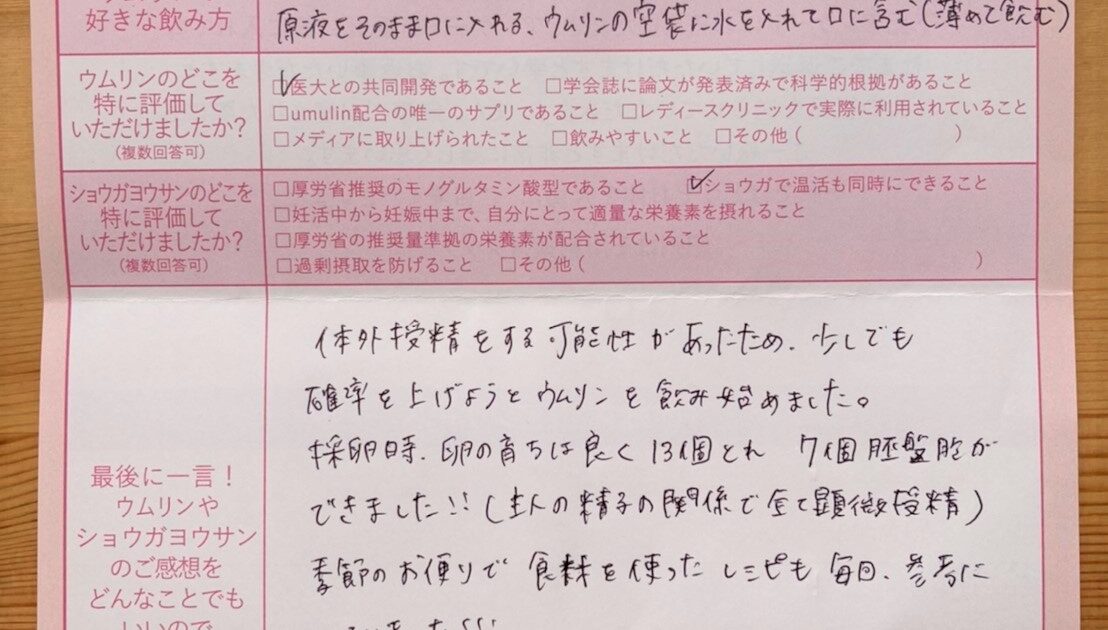 好きな飲み方
原液をそのまま口に入れる、ウムリンの空袋に水を入れて口に含む(薄めて飲む)
ウムリンのどこを
特に評価して
いただけましたか?
(複数回答可)
□医大との共同開発であること □学会誌に論文が発表済みで科学的根拠があること
□umulin配合の唯一のサプリであること □レディースクリニックで実際に利用されていること
□メディアに取り上げられたこと □飲みやすいこと □その他( )
ショウガヨウサンのどこを
特に評価して
いただけましたか?
(複数回答可)
□厚労省推奨のモノグルタミン酸型であること □ショウガで温活も同時にできること
□妊活中から妊娠中まで、自分にとって適量な栄養素を摂れること
□厚労省の推奨量準拠の栄養素が配合されていること
□過剰摂取を防げること □その他( )
最後に一言!
ウムリンや
ショウガヨウサン
のご感想を
どんなことでも
いいので
体外授精をする可能性があったため、少しでも
確率を上げようとウムリンを飲み始めました。
採卵時、卵の育ちは良く13個とれ 7個胚盤胞が
できました!!(主人の精子の関係で全て顕微授精)
季節のお便りで食材を使ったレシピも毎回、参考に